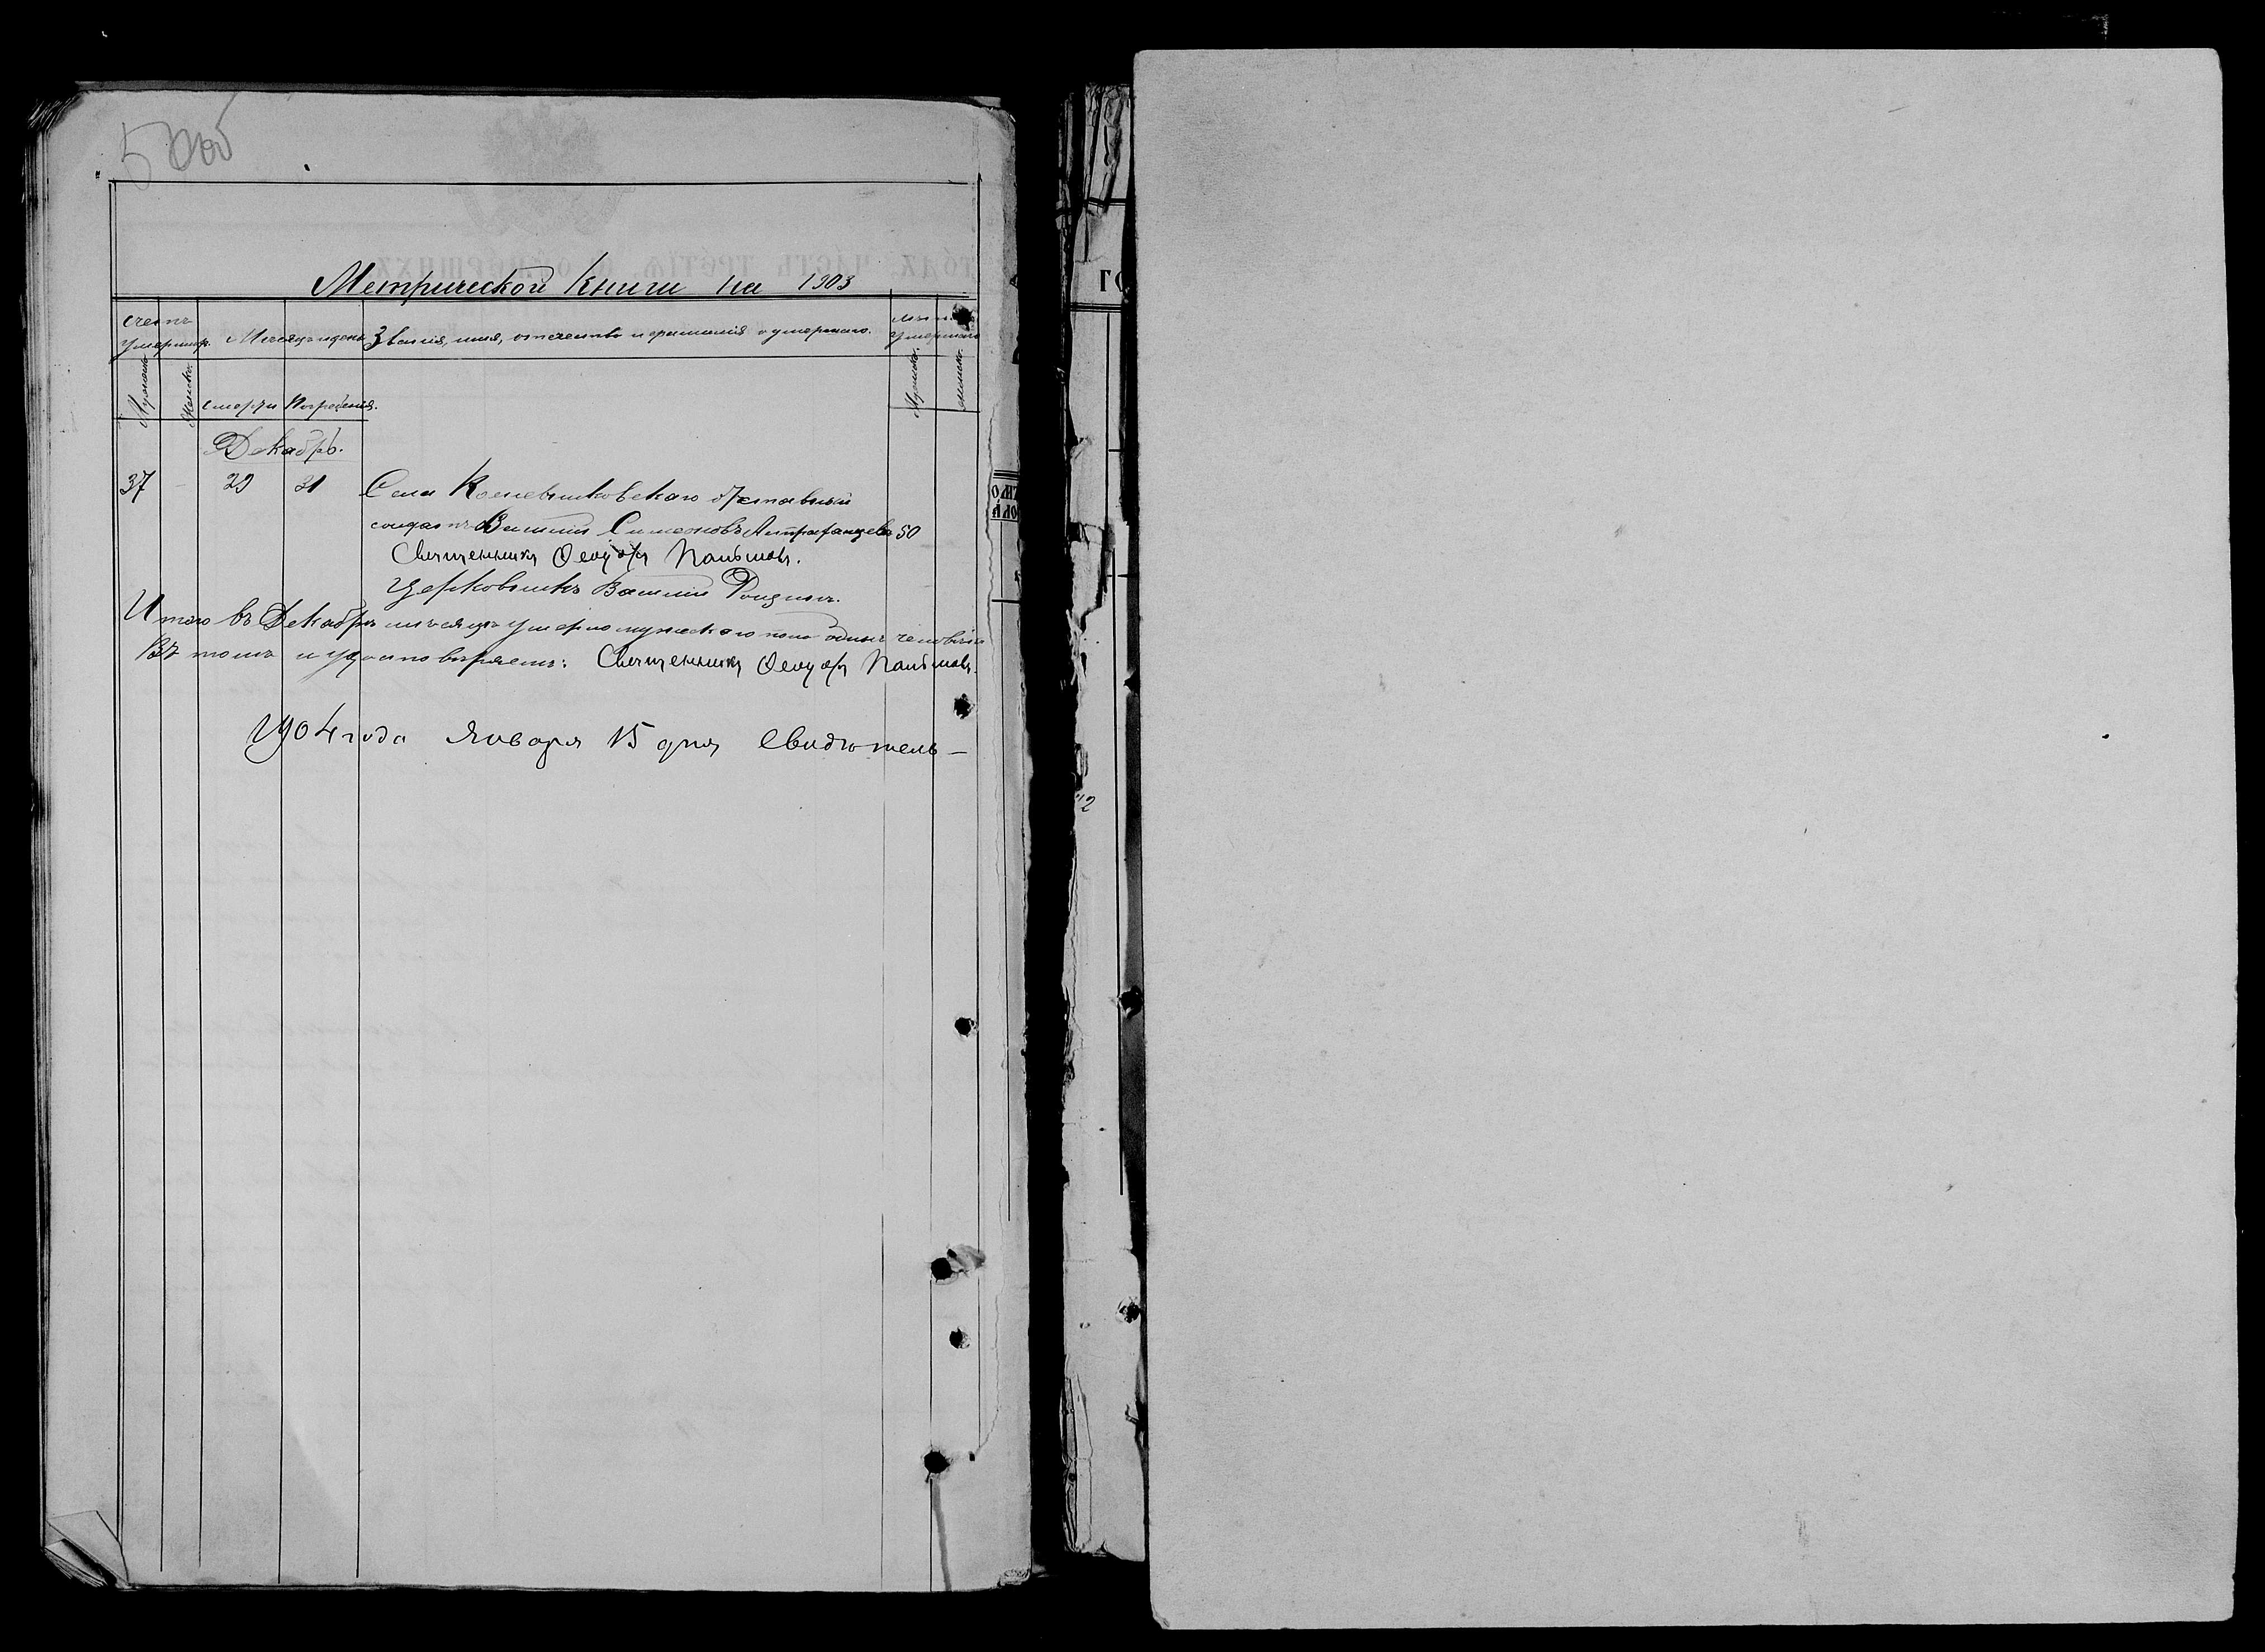 500об
Метрической Книги на 1903
Счетъ умершихъ. Месяцъ и день Званія, имя, отчество и фамилія умершаго. Лѣта умершаго
Мужска. Женска. смерти Погребенія. Мужска. Женска.
Декабрь.
37 29 31 Села Кожевниковскаго отставный
солдатъ Василій Симеоновъ 50
Священникъ Ѳеодоръ
Церковникъ Василій
Итого въ Декабрѣ мѣсяцѣ умерло мужескаго пола одинъ человѣкъ
Въ томъ и удостовѣряемъ: Священникъ Ѳеодоръ
1904 года Января 15 дня Свидѣтель-